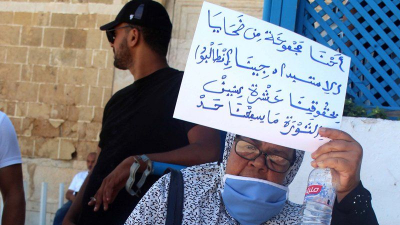 أحنا مجموعة من ضحايا
الإستبداد جينا انطالبوا
بحقوقنا عشرة سنين
الثورة ما سمعنا حد